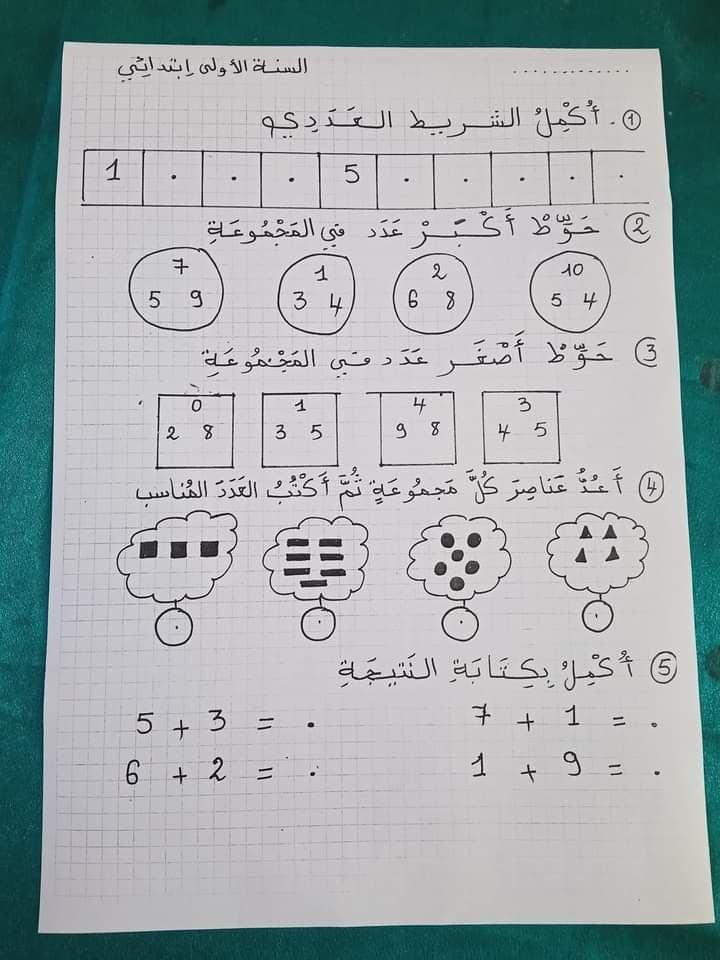 السنة الأولى إبتدائي ..............
① . أُكْمِلُ الشريط العَدَدِي
1 . . . 5 . . . . .
② حَوِّطْ أَكْبَرْ عَدَد في المَجْمُوعَةِ
7 1 2 10
5 9 3 4 6 8 5 4
③ حَوِّطْ أَصْغَر عَدَد في المَجْمُوعَةِ
0 1 4 3
2 8 3 5 9 8 4 5
④ أَعُدُّ عَناصِرَ كُلَّ مَجموعَةٍ ثُمَّ أَكْتُبُ العَدَدَ المُناسب
. . . .
⑤ أُكْمِلُ بِكِتَابَةِ النَتيجَةِ
5 + 3 = . 7 + 1 = .
6 + 2 = . 1 + 9 = .